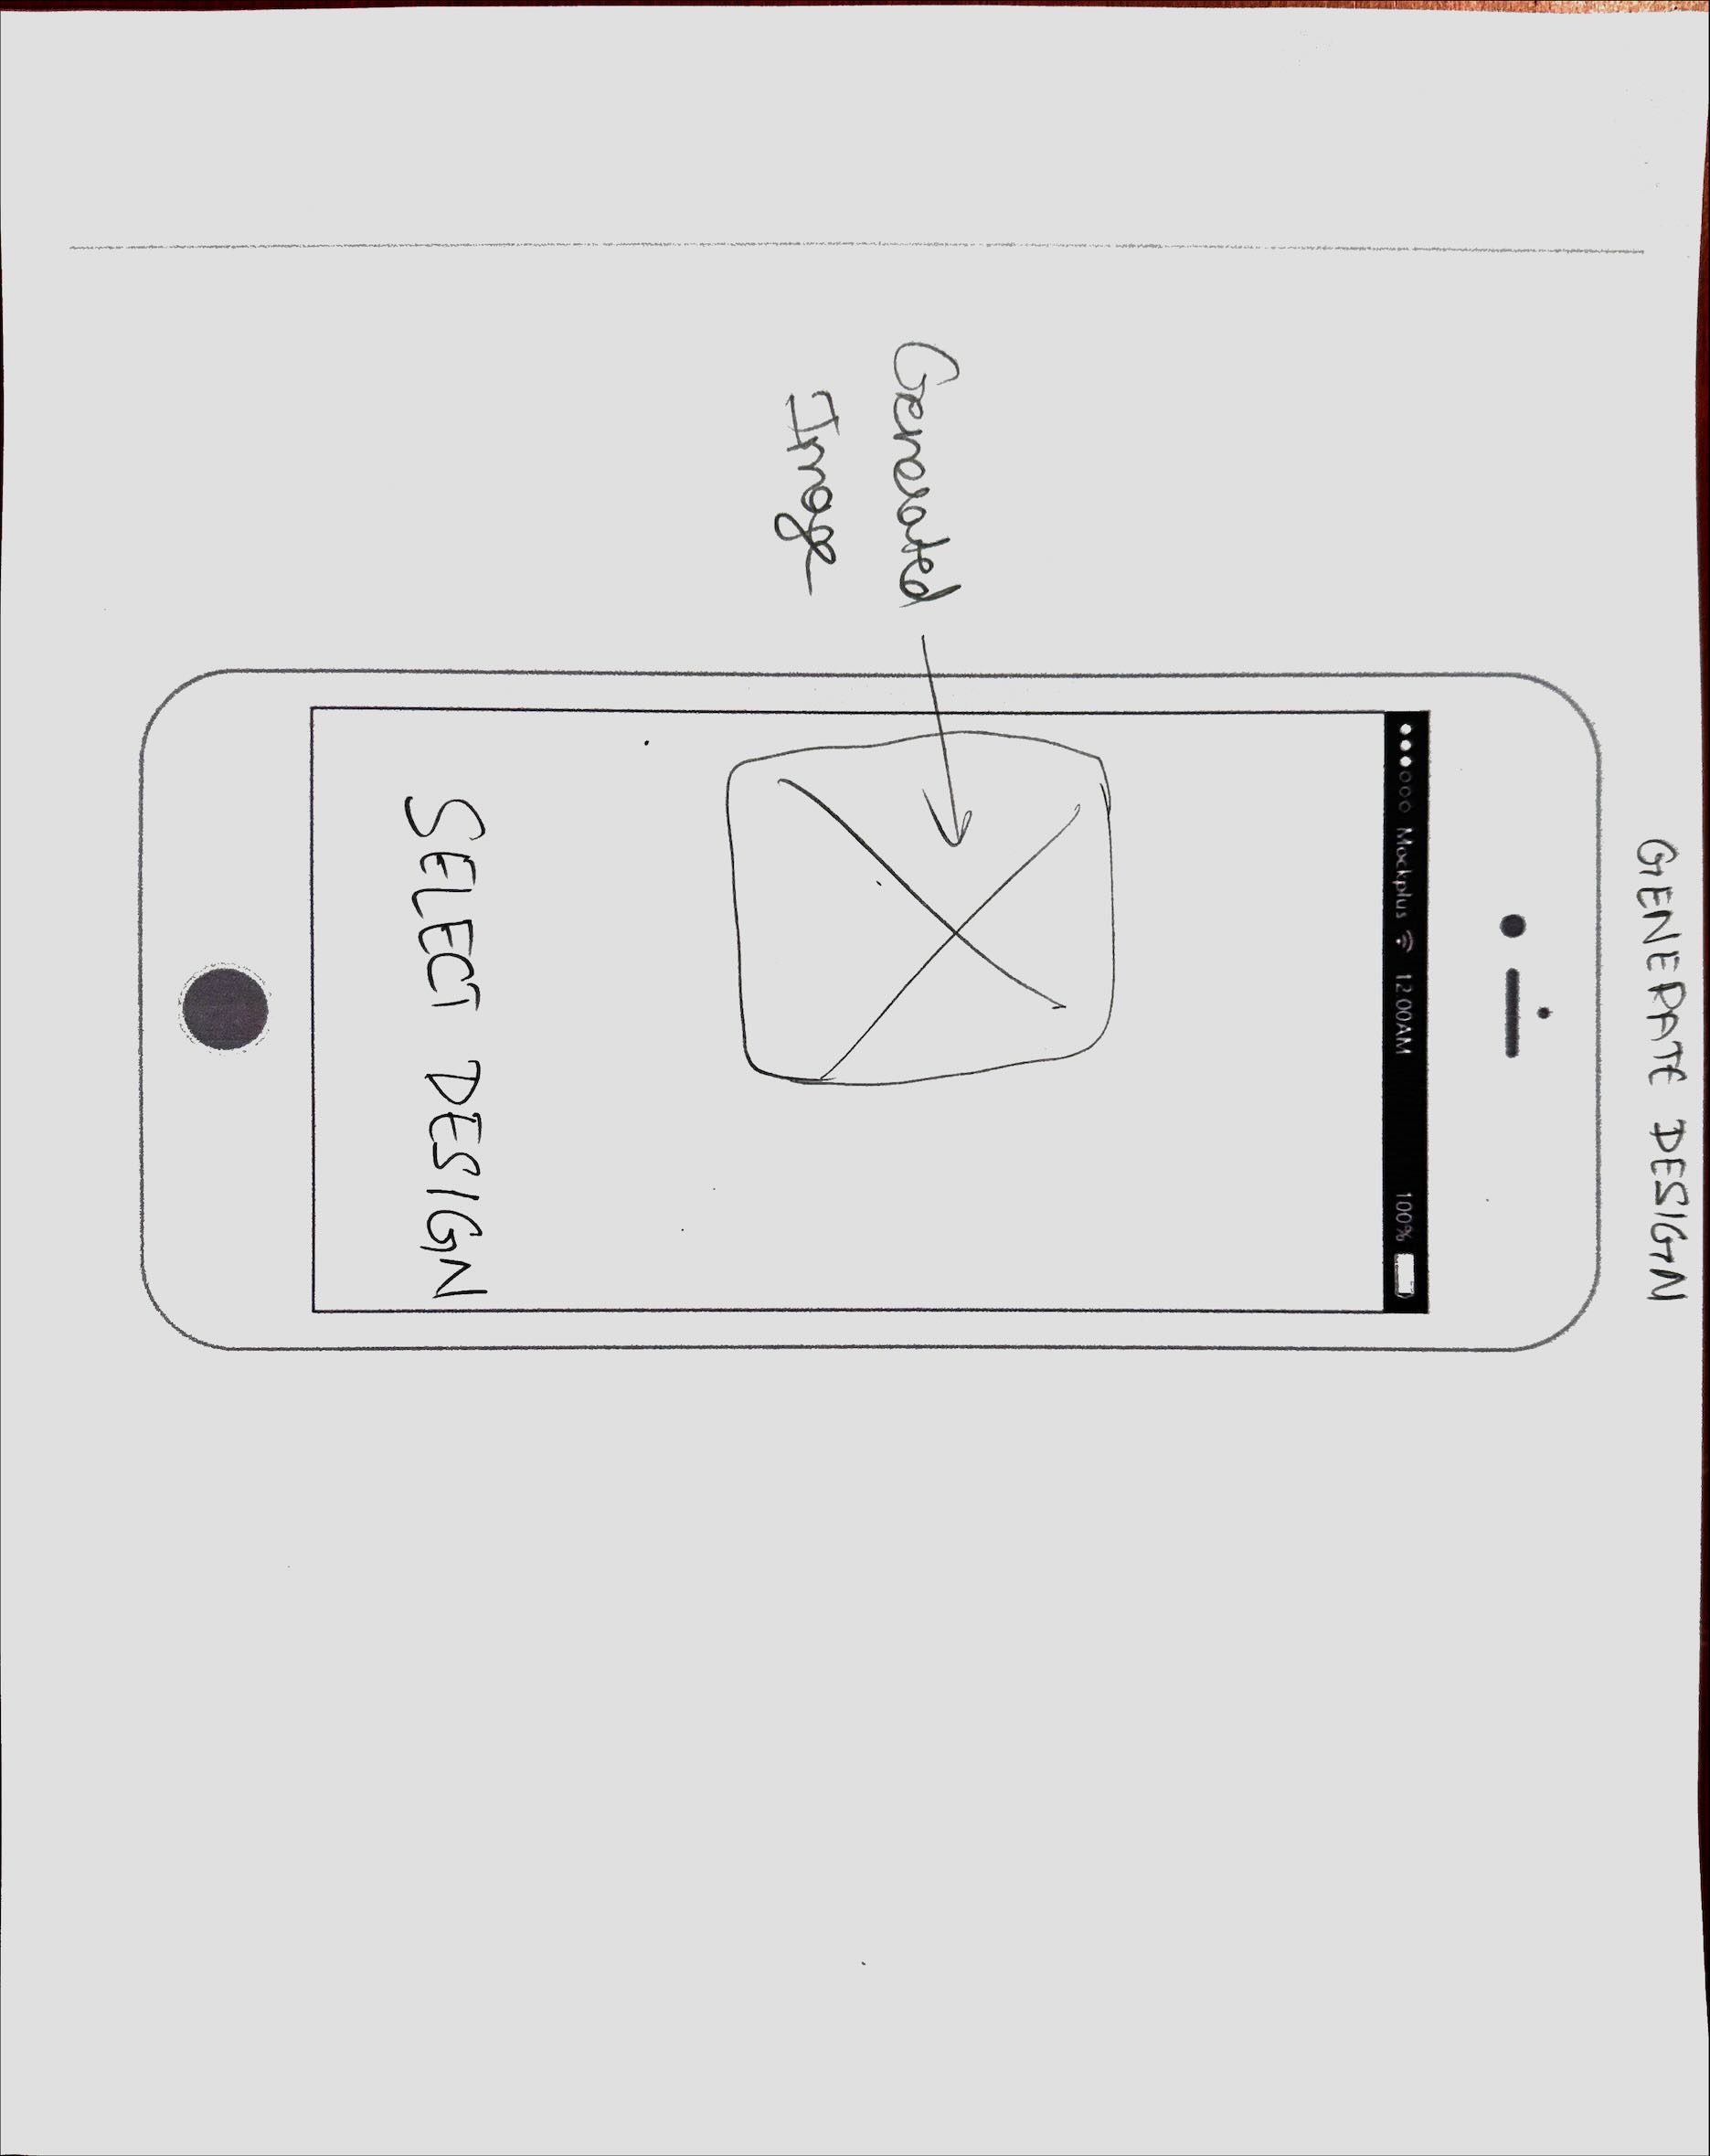 GENERATE DESIGN
Mockplus 12:00AM 100%
Generated
Image
SELECT DESIGN